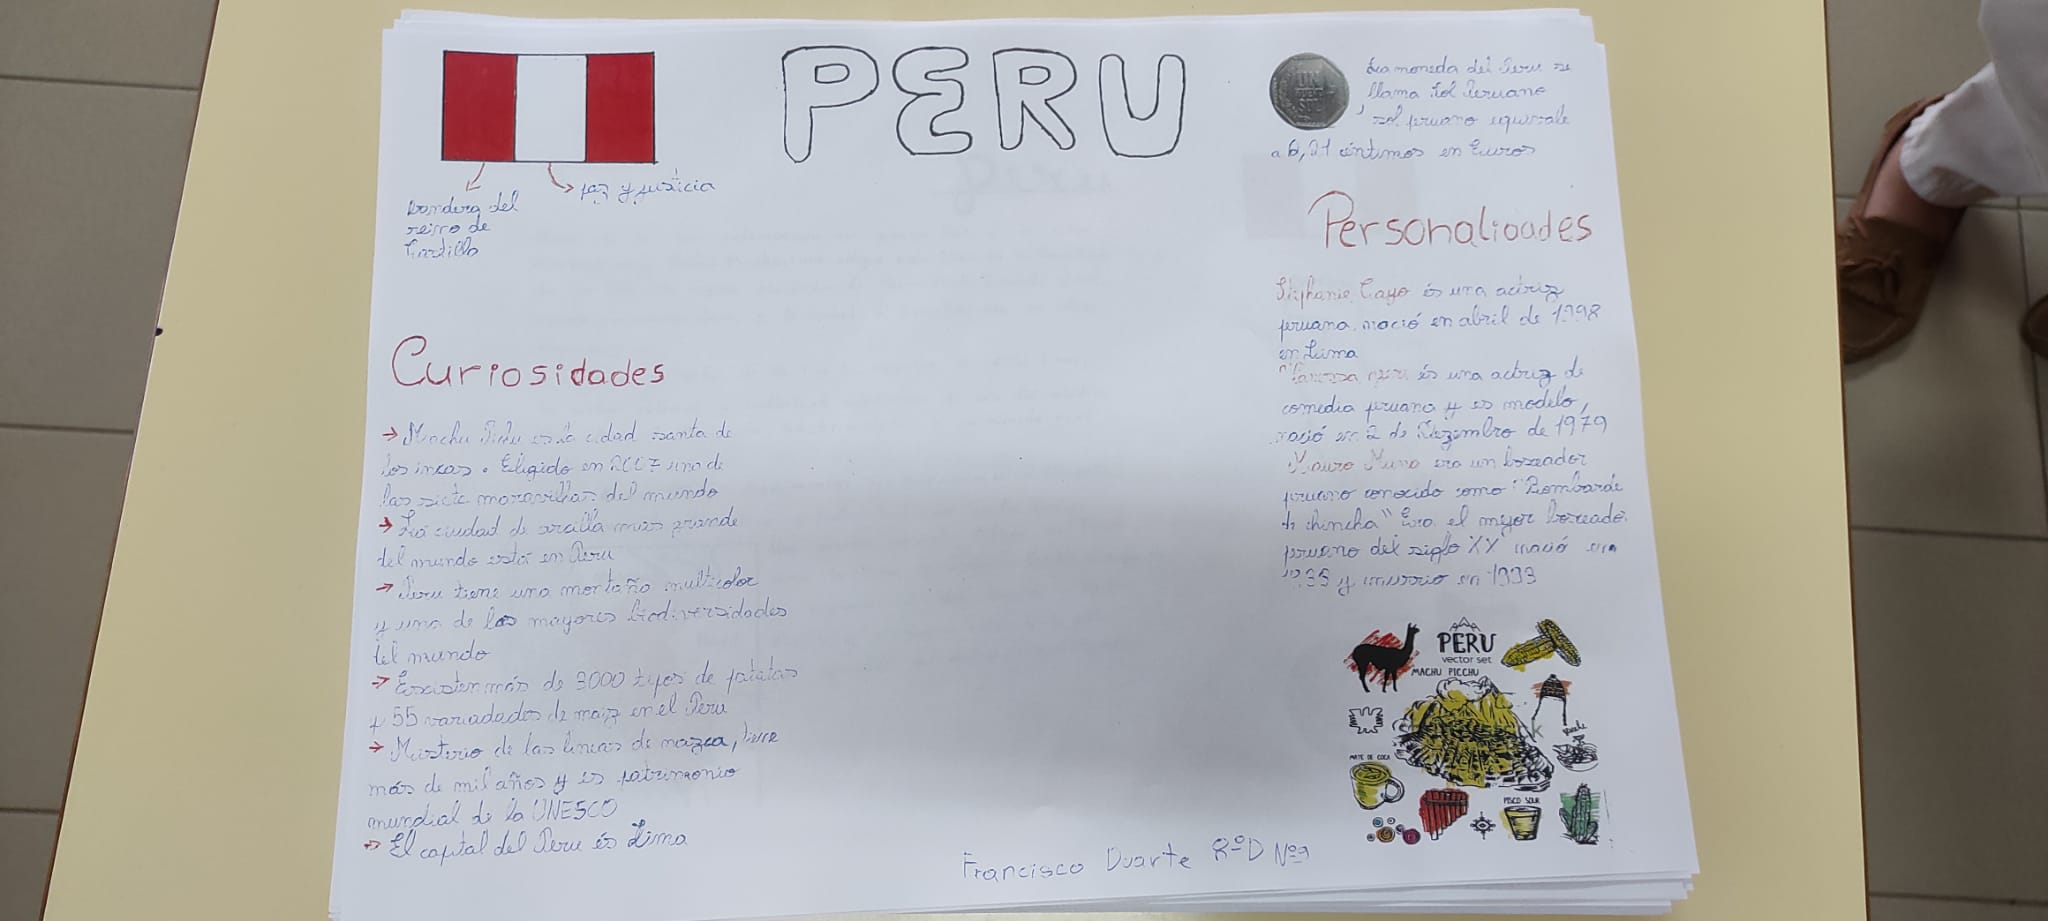 PERU
paz y justicia
bandera del
reino de
Castilla
La moneda del Peru se
llama Sol Peruano
1 sol peruano equivale
a 0,21 céntimos en Euros
UN
NUEVO
SOL
Curiosidades
→ Machu Pichu es la cidad santa de
los incas. Eligido en 2007 una de
las siete maravillas del mundo
→ La ciudad de arcilla mas grande
del mundo está en Peru
→ Peru tiene una montaña multicolor
y una de las mayores biodiversidades
del mundo
→ Existen más de 3000 tipos de patatas
y 55 variadades de maiz en el Peru
→ Misterio de las lineas de nazca, tiene
más de mil años y és patrimonio
mundial de la UNESCO
→ El capital del Peru és Lima
Personalidades
Stephanie Cayo és una actriz
peruana, nació en abril de 1998
en Lima
és una actriz de
comedia peruana y es modelo,
nació en 2 de Dezembro de 1979
Mauro Mina era un boxeador
peruano conocido como "Bombardé
de chincha" Era el mejor boxeador
peruano del siglo XX nació en
y murrio en 1993
PERU
vector set
MACHU PICCHU
MATE DE COCA
PISCO SOUR
Francisco Duarte 8ºD Nº9